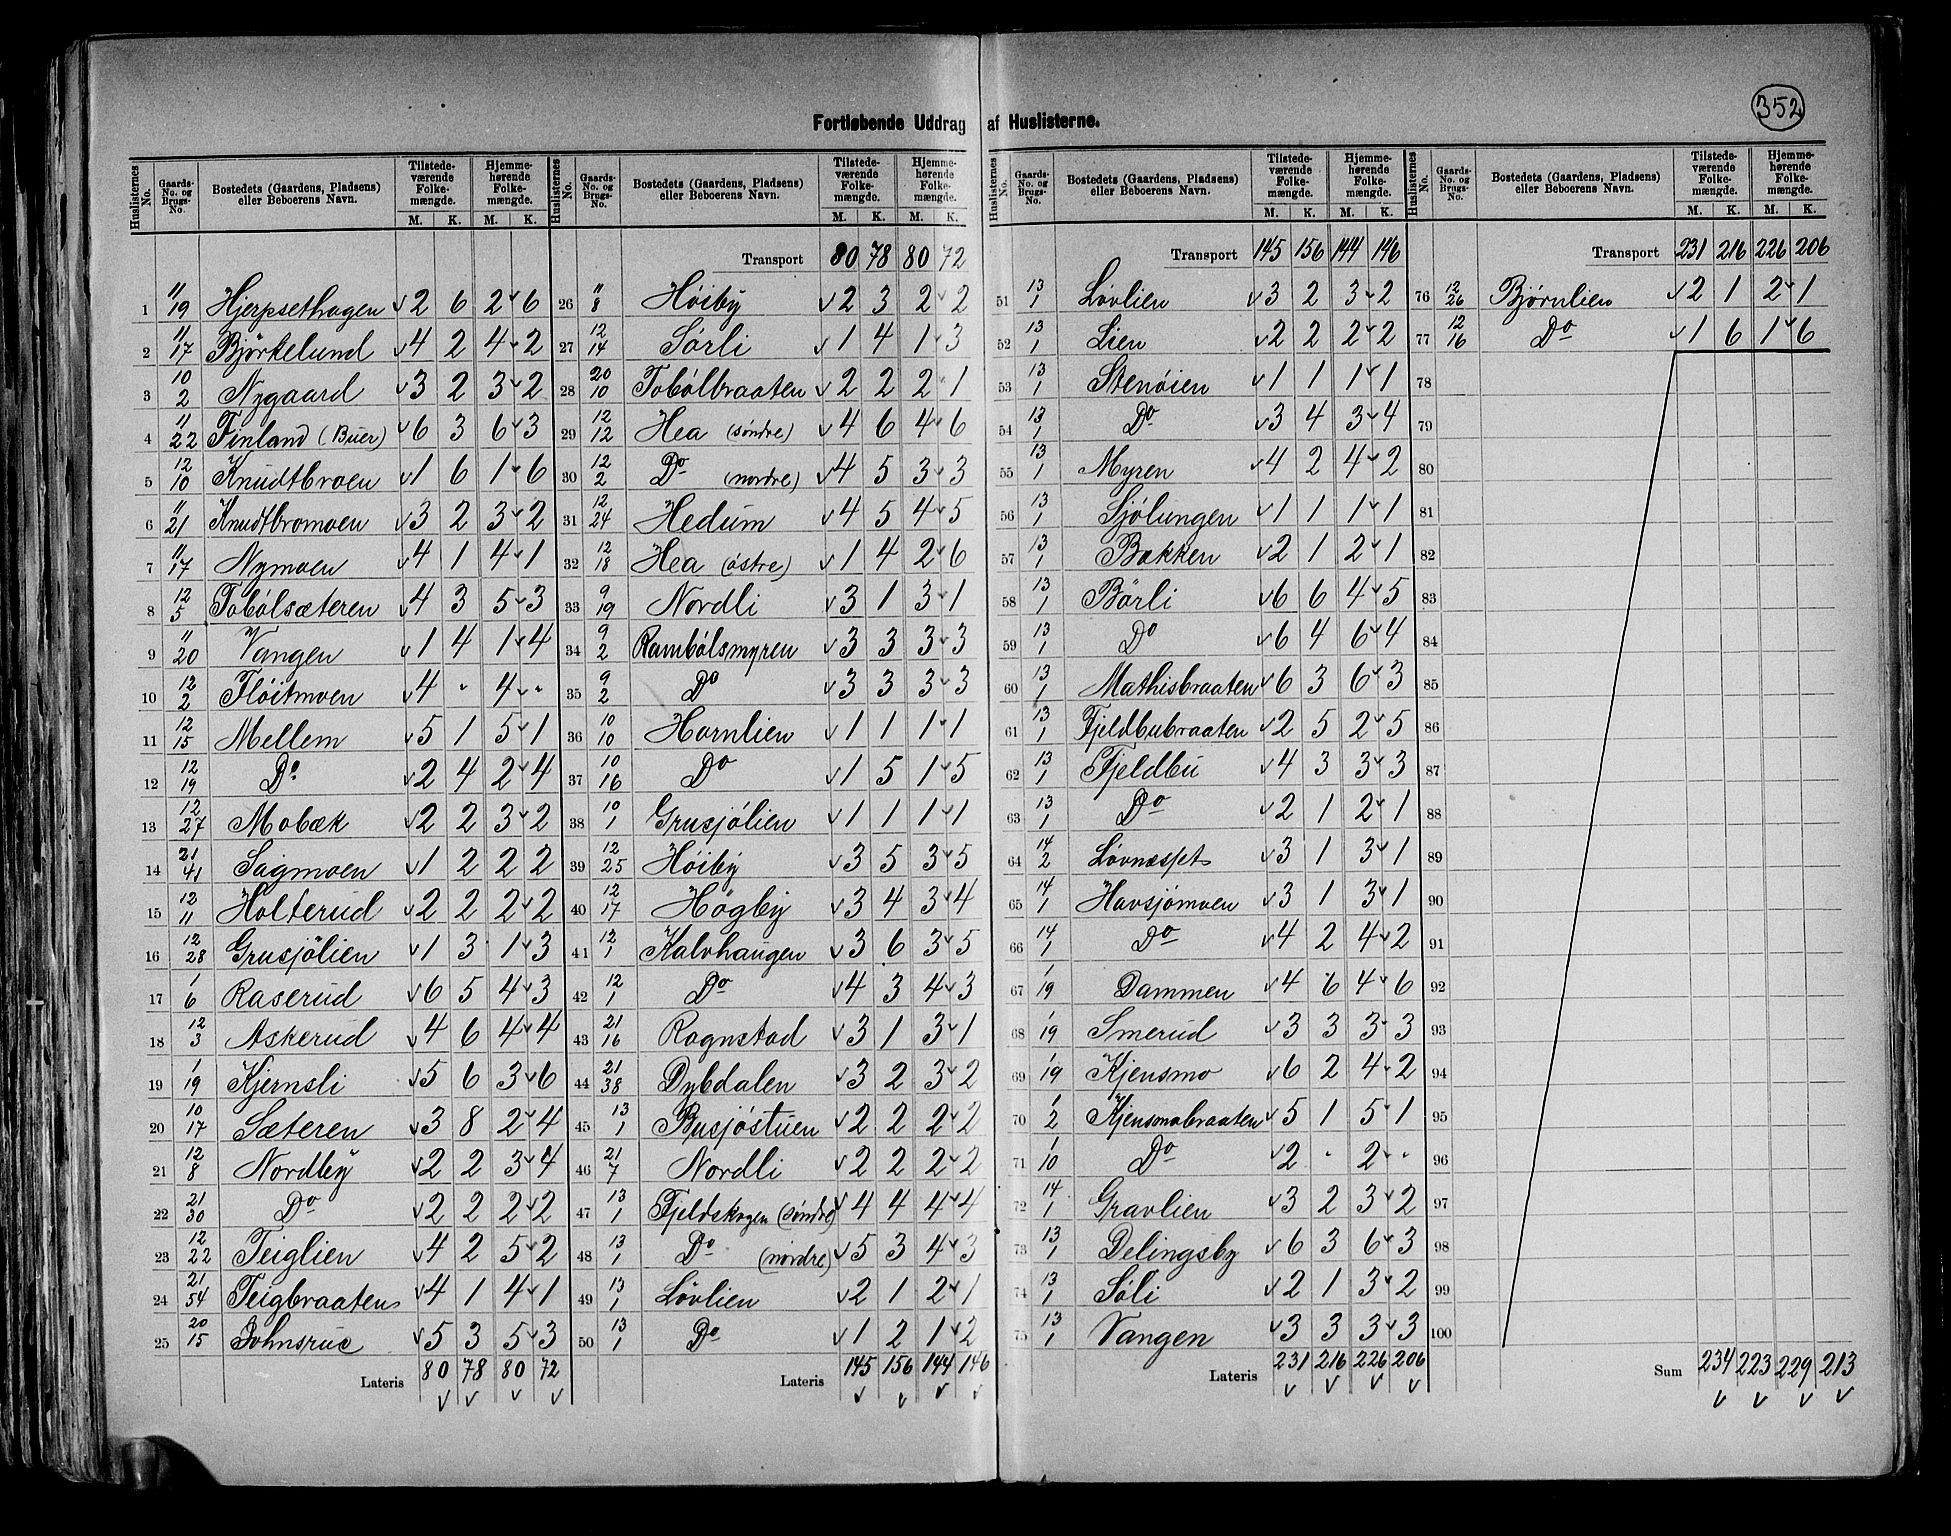 352
Fortløbende Uddrag af Huslisterne.
Huslisternes No. | Gaards-No. og Brugs-No. | Bostedets (Gaardens, Pladsens) eller Beboerens Navn. | Tilstedeværende Folkemængde. M. K. | Hjemmehørende Folkemængde. M. K.
1 11/19 Hjerpsethagen 2 6 2 6
2 11/17 Björkelund 4 2 4 2
3 10/2 Nygaard 3 2 3 2
4 11/22 Finland (Buer) 6 3 6 3
5 12/10 Knudtbroen 1 6 1 6
6 11/21 Knudtbromoen 3 2 3 2
7 11/17 Nymoen 4 1 4 1
8 12/5 Tobölsæteren 4 3 5 3
9 11/20 Vangen 1 4 1 4
10 12/2 Flöitmoen 4 " 4 "
11 12/15 Mellem 5 1 5 1
12 12/19 Do 2 4 2 4
13 12/27 Mobæk 2 2 3 2
14 21/41 Sagmoen 1 2 2 2
15 12/11 Holterud 2 2 2 2
16 12/28 Grusjölien 1 3 1 3
17 1/6 Raserud 6 5 4 3
18 12/3 Askerud 4 6 4 4
19 1/19 Kjernsli 5 6 3 6
20 10/17 Sæteren 3 8 2 4
21 12/8 Nordby 2 2 3 4
22 21/30 Do 2 2 2 2
23 12/22 Teiglien 4 2 5 2
24 21/54 Teigbraaten 4 1 4 1
25 20/15 Johnsrud 5 3 5 3
Lateris 80 78 80 72
Transport 80 78 80 72
26 11/8 Höiby 2 3 2 2
27 12/14 Sörli 1 4 1 3
28 20/10 Tobölbraaten 2 2 2 1
29 12/12 Hea (søndre) 4 6 4 6
30 12/2 Do (nordre) 4 5 3 3
31 12/24 Hedum 4 5 4 5
32 12/18 Hea (østre) 1 4 2 6
33 9/19 Nordli 3 1 3 1
34 9/2 Rambölsmyren 3 3 3 3
35 9/2 Do 3 3 3 3
36 10/10 Hornlien 1 1 1 1
37 10/16 Do 1 5 1 5
38 10/1 Grusjölien 1 1 1 1
39 12/25 Höiby 3 5 3 5
40 12/17 Högby 3 4 3 4
41 12/1 Kalvhaugen 3 6 3 5
42 12/1 Do 4 3 4 3
43 21/16 Rognstad 3 1 3 1
44 21/38 Dybdalen 3 2 3 2
45 13/1 Busjöstuen 2 2 2 2
46 21/7 Nordli 2 2 2 2
47 13/1 Fjeldskogen (søndre) 4 4 4 4
48 13/1 Do (nordre) 5 3 4 3
49 13/1 Lövlien 2 1 2 1
50 13/1 Do 1 2 1 2
Lateris 145 156 144 146
Transport 145 156 144 146
51 13/1 Lövlien 3 2 3 2
52 13/1 Lien 2 2 2 2
53 13/1 Stenöien 1 1 1 1
54 13/1 Do 3 4 3 4
55 13/1 Myren 4 2 4 2
56 13/1 Sjölungen 1 1 1 1
57 13/1 Bakken 2 1 2 1
58 13/1 Börli 6 6 4 5
59 13/1 Do 6 4 6 4
60 13/1 Mathisbraaten 6 3 6 3
61 13/1 Fjeldbubraaten 2 5 2 5
62 13/1 Fjeldbu 4 3 3 3
63 13/1 Do 2 1 2 1
64 14/2 Lövnæsset 3 1 3 1
65 14/1 Havsjömoen 3 1 3 1
66 14/1 Do 4 2 4 2
67 1/19 Dammen 4 6 4 6
68 1/19 Smerud 3 3 3 3
69 1/19 Kjensmo 6 2 4 2
70 1/2 Kjensmobraaten 5 1 5 1
71 1/10 Do 2 " 2 "
72 14/1 Gravlien 3 2 3 2
73 13/1 Delingsby 6 3 6 3
74 13/1 Söli 2 1 3 2
75 13/1 Vangen 3 3 3 3
Lateris 231 216 226 206
Transport 231 216 226 206
76 12/26 Bjørnlien 2 1 2 1
77 12/16 Do 1 6 1 6
78
79
80
81
82
83
84
85
86
87
88
89
90
91
92
93
94
95
96
97
98
99
100
Sum 234 223 229 213